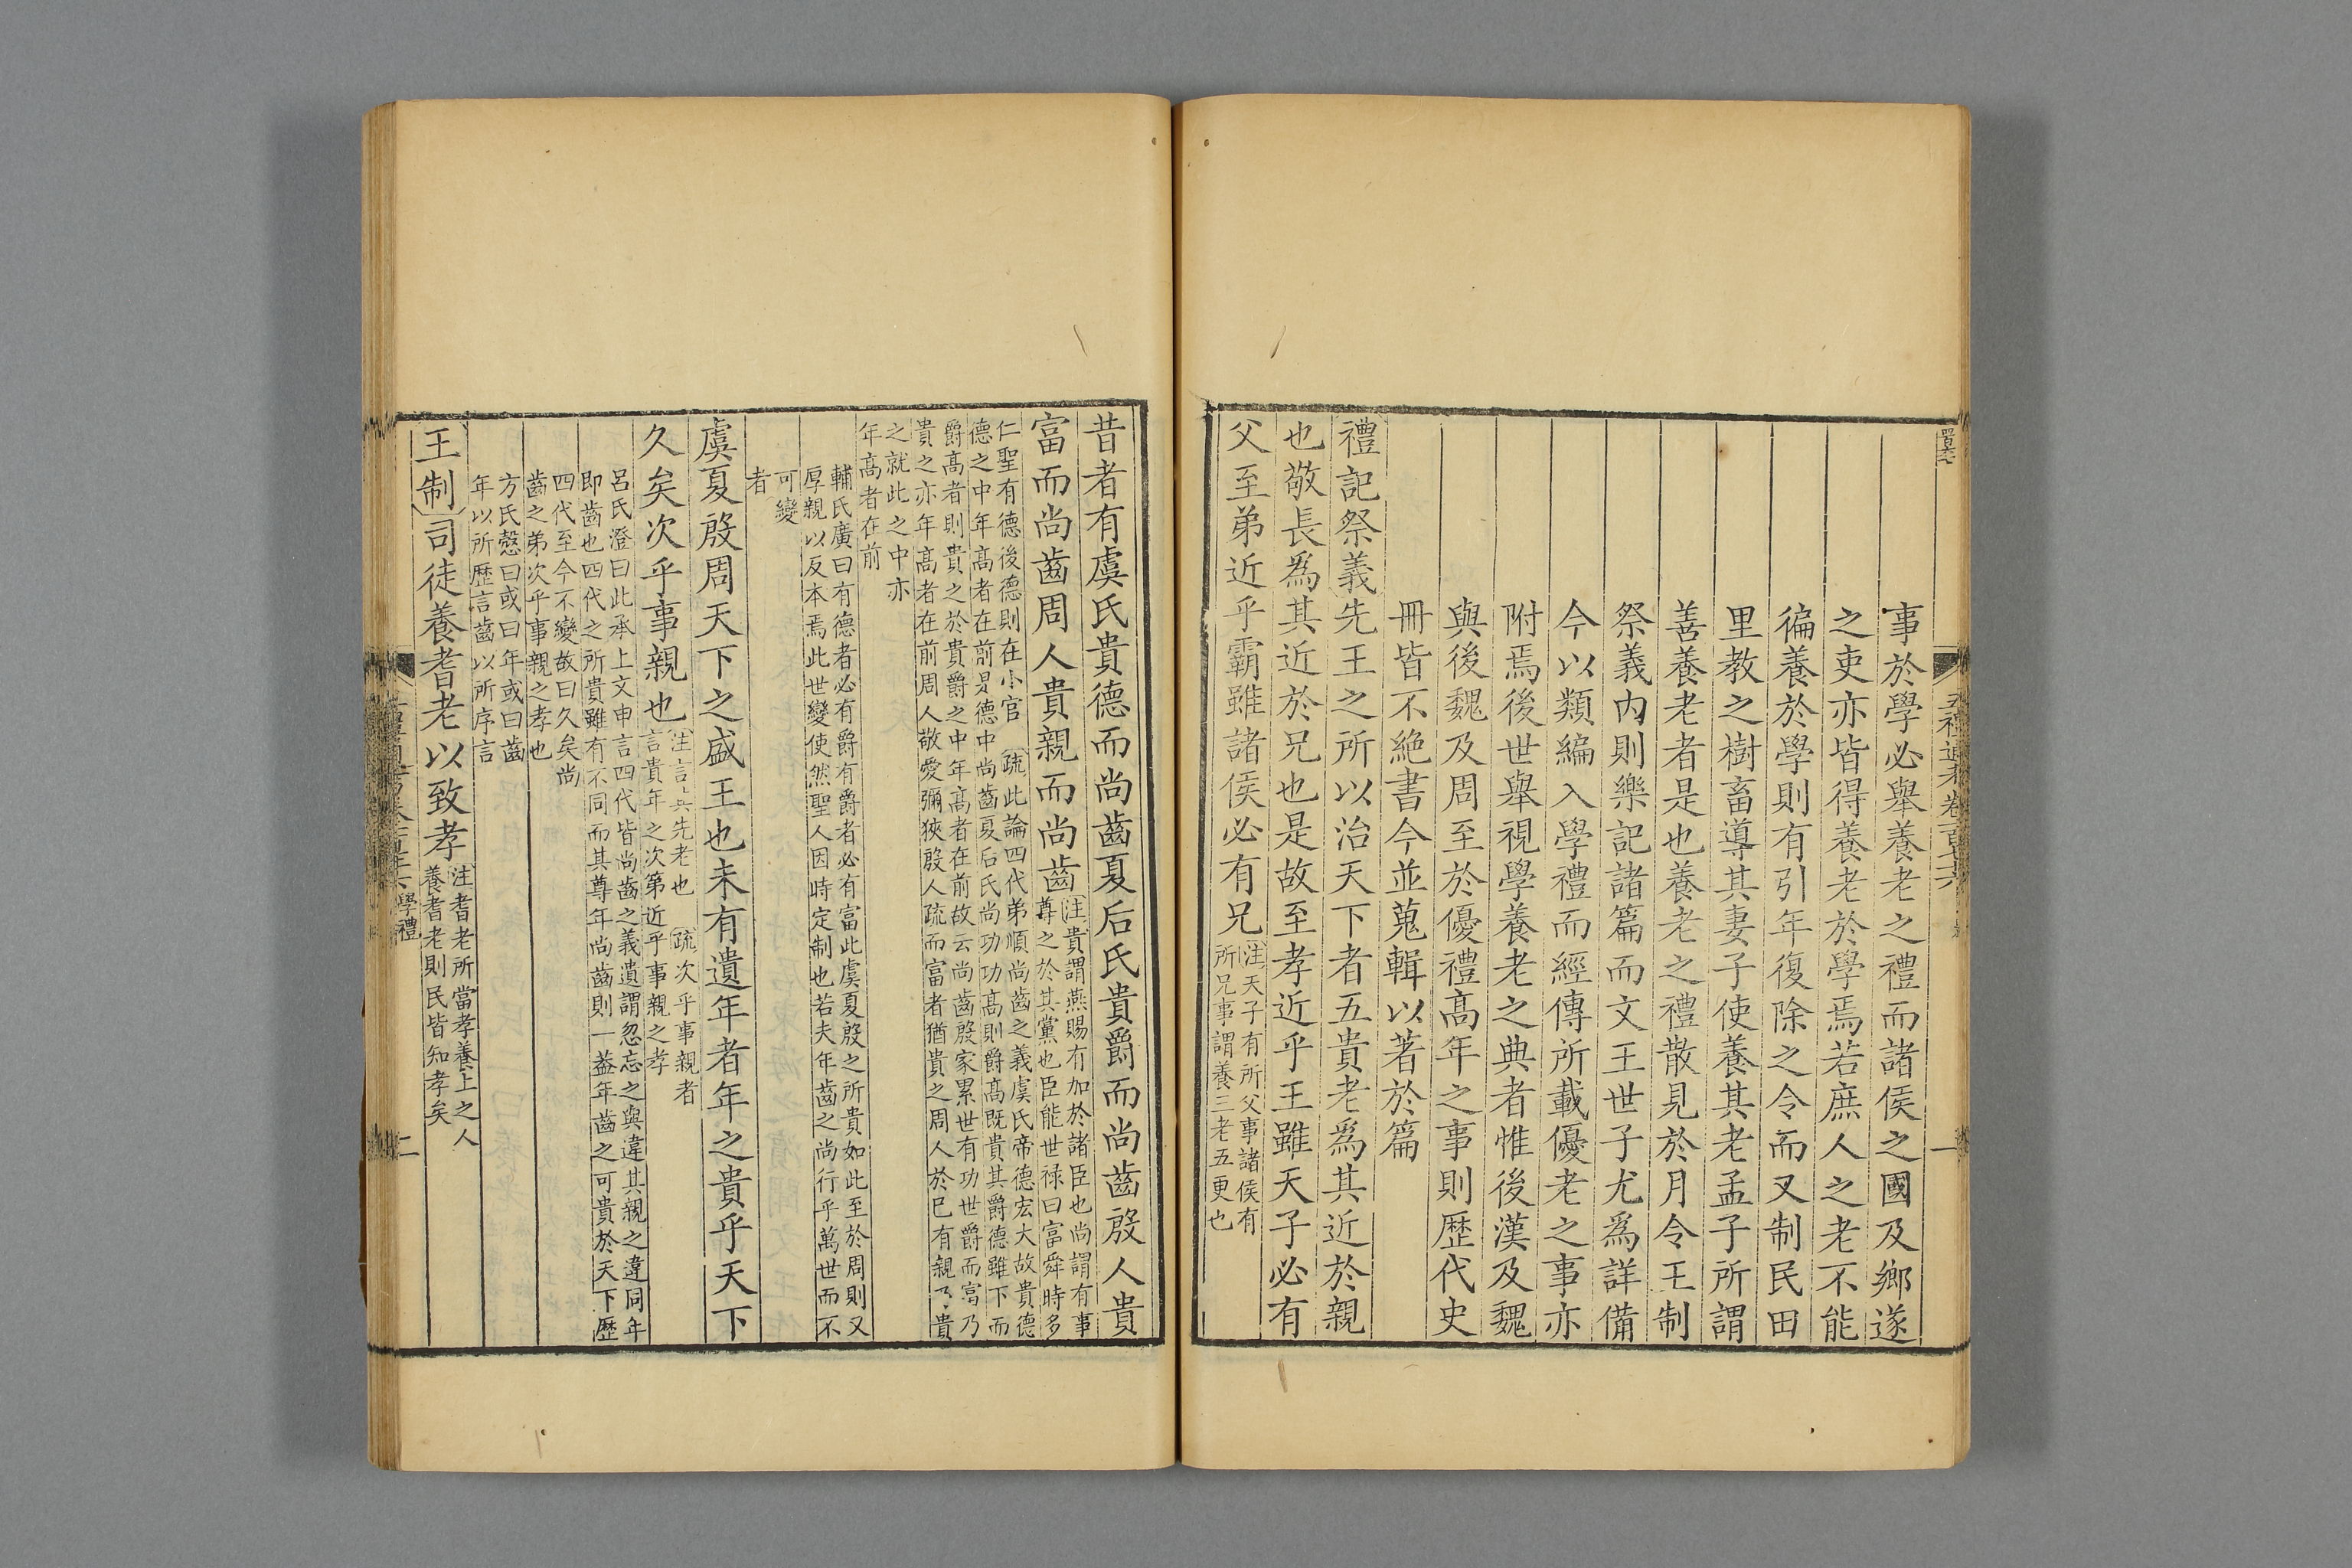 事於學必舉養老之禮而諸侯之國及鄉遂
之吏亦皆得養老於學焉若庶人之老不能
徧養於學則有引年復除之令而又制民田
里教之樹畜導其妻子使養其老孟子所謂
善養老者是也養老之禮散見於月令王制
祭義內則樂記諸篇而文王世子尤爲詳備
今以類編入學禮而經傳所載優老之事亦
附焉後世舉視學養老之典者惟後漢及魏
與後魏及周至於優禮高年之事則歷代史
冊皆不絕書今並蒐輯以著於篇
禮記祭義先王之所以治天下者五貴老爲其近於親
也敬長爲其近於兄也是故至孝近乎王雖天子必有
父至弟近乎霸雖諸侯必有兄
注天子有所父事諸侯有
所兄事謂養三老五更也
昔者有虞氏貴德而尚齒夏后氏貴爵而尚齒殷人貴
富而尚齒周人貴親而尚齒
注貴謂燕賜有加於諸臣也尚謂有事
尊之於其黨也臣能世祿曰富舜時多
仁聖有德後德則在小官 疏此論四代弟順尚齒之義虞氏帝德宏大故貴德
德之中年高者在前是德中尚齒夏后氏尚功功高則爵高既貴其爵德雖下而
爵高者則貴之於貴爵之中年高者在前故云尚齒殷家累世有功世爵而富乃
貴之亦年高者在前周人敬愛彌狹殷人疏而富者猶貴之周人於已有親乃貴
之就此之中亦
年高者在前
輔氏廣曰有德者必有爵有爵者必有富此虞夏殷之所貴如此至於周則又
厚親以反本焉此世變使然聖人因時定制也若夫年齒之尚行乎萬世而不
可變
者
虞夏殷周天下之盛王也未有遺年者年之貴乎天下
久矣次乎事親也
注言其先老也 疏次乎事親者
言貴年之次第近乎事親之孝
呂氏澄曰此承上文申言四代皆尚齒之義遺謂忽忘之與違其親之違同年
即齒也四代之所貴雖有不同而其尊年尚齒則一葢年齒之可貴於天下歷
四代至今不變故曰久矣尚
齒之弟次乎事親之孝也
方氏慤曰或曰年或曰齒
年以所歷言齒以所序言
王制司徒養耆老以致孝
注耆老所當孝養上之人
養耆老則民皆知孝矣
五禮通考卷一百七十六
一
學禮
二